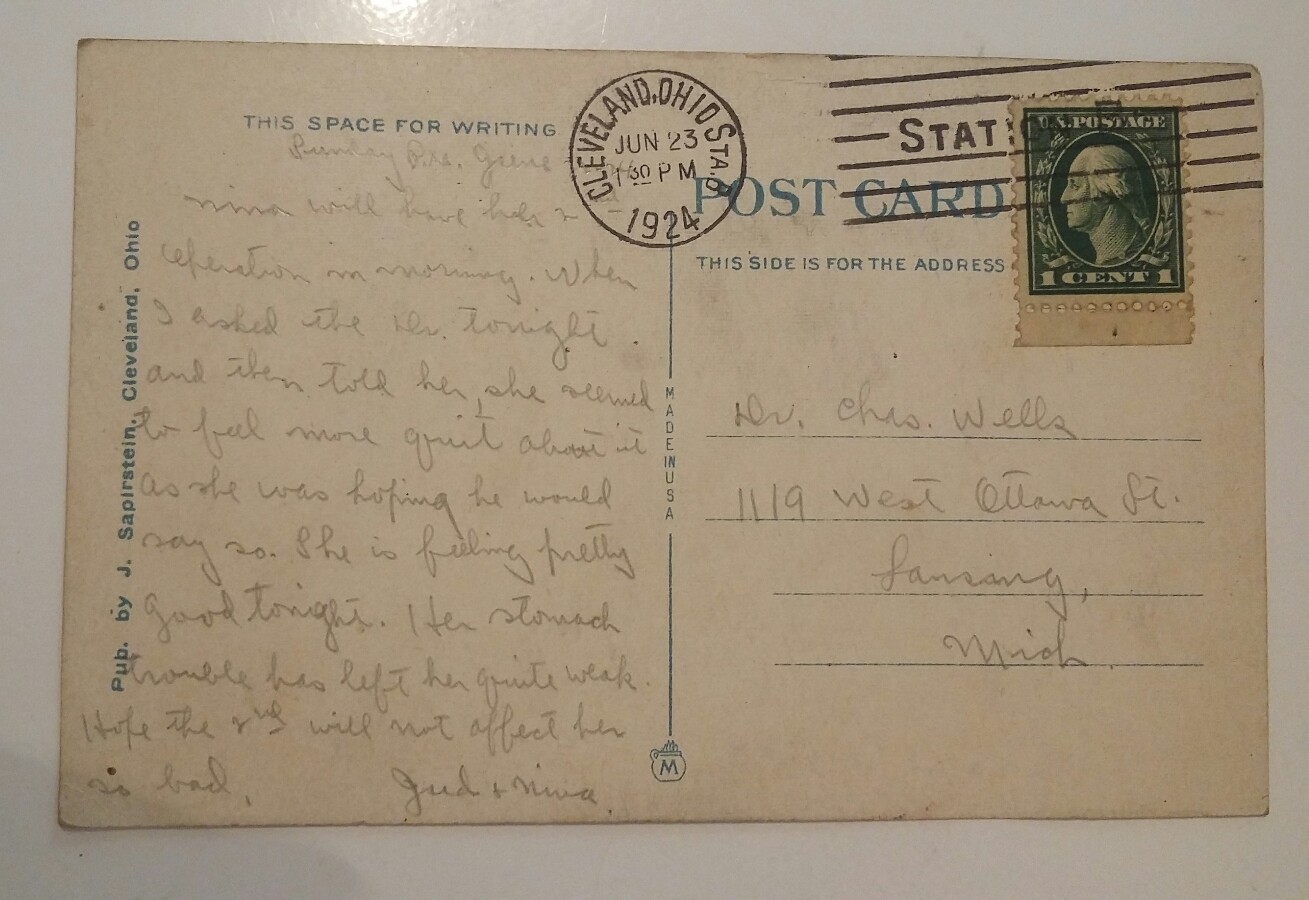 THIS SPACE FOR WRITING
Sunday
Nina will have her 2
operation in morning. When
I asked the Dr. tonight
and then told her, she seemed
to feel more quiet about it
as she was hoping he would
say so. She is feeling pretty
good tonight. Her stomach
trouble has left her quite weak.
Hope the 2nd will not affect her
so bad.
Jud + Nina.
Pub. by J. Sapirstein, Cleveland, Ohio
CLEVELAND, OHIO STA.
JUN 23
1 30 PM
1924
STAT
U.S. POSTAGE
1 CENT 1
POST CARD
THIS SIDE IS FOR THE ADDRESS
MADE IN USA
M
Dr. Chas. Wells
1119 West Ottawa St.
Lansing,
Mich.